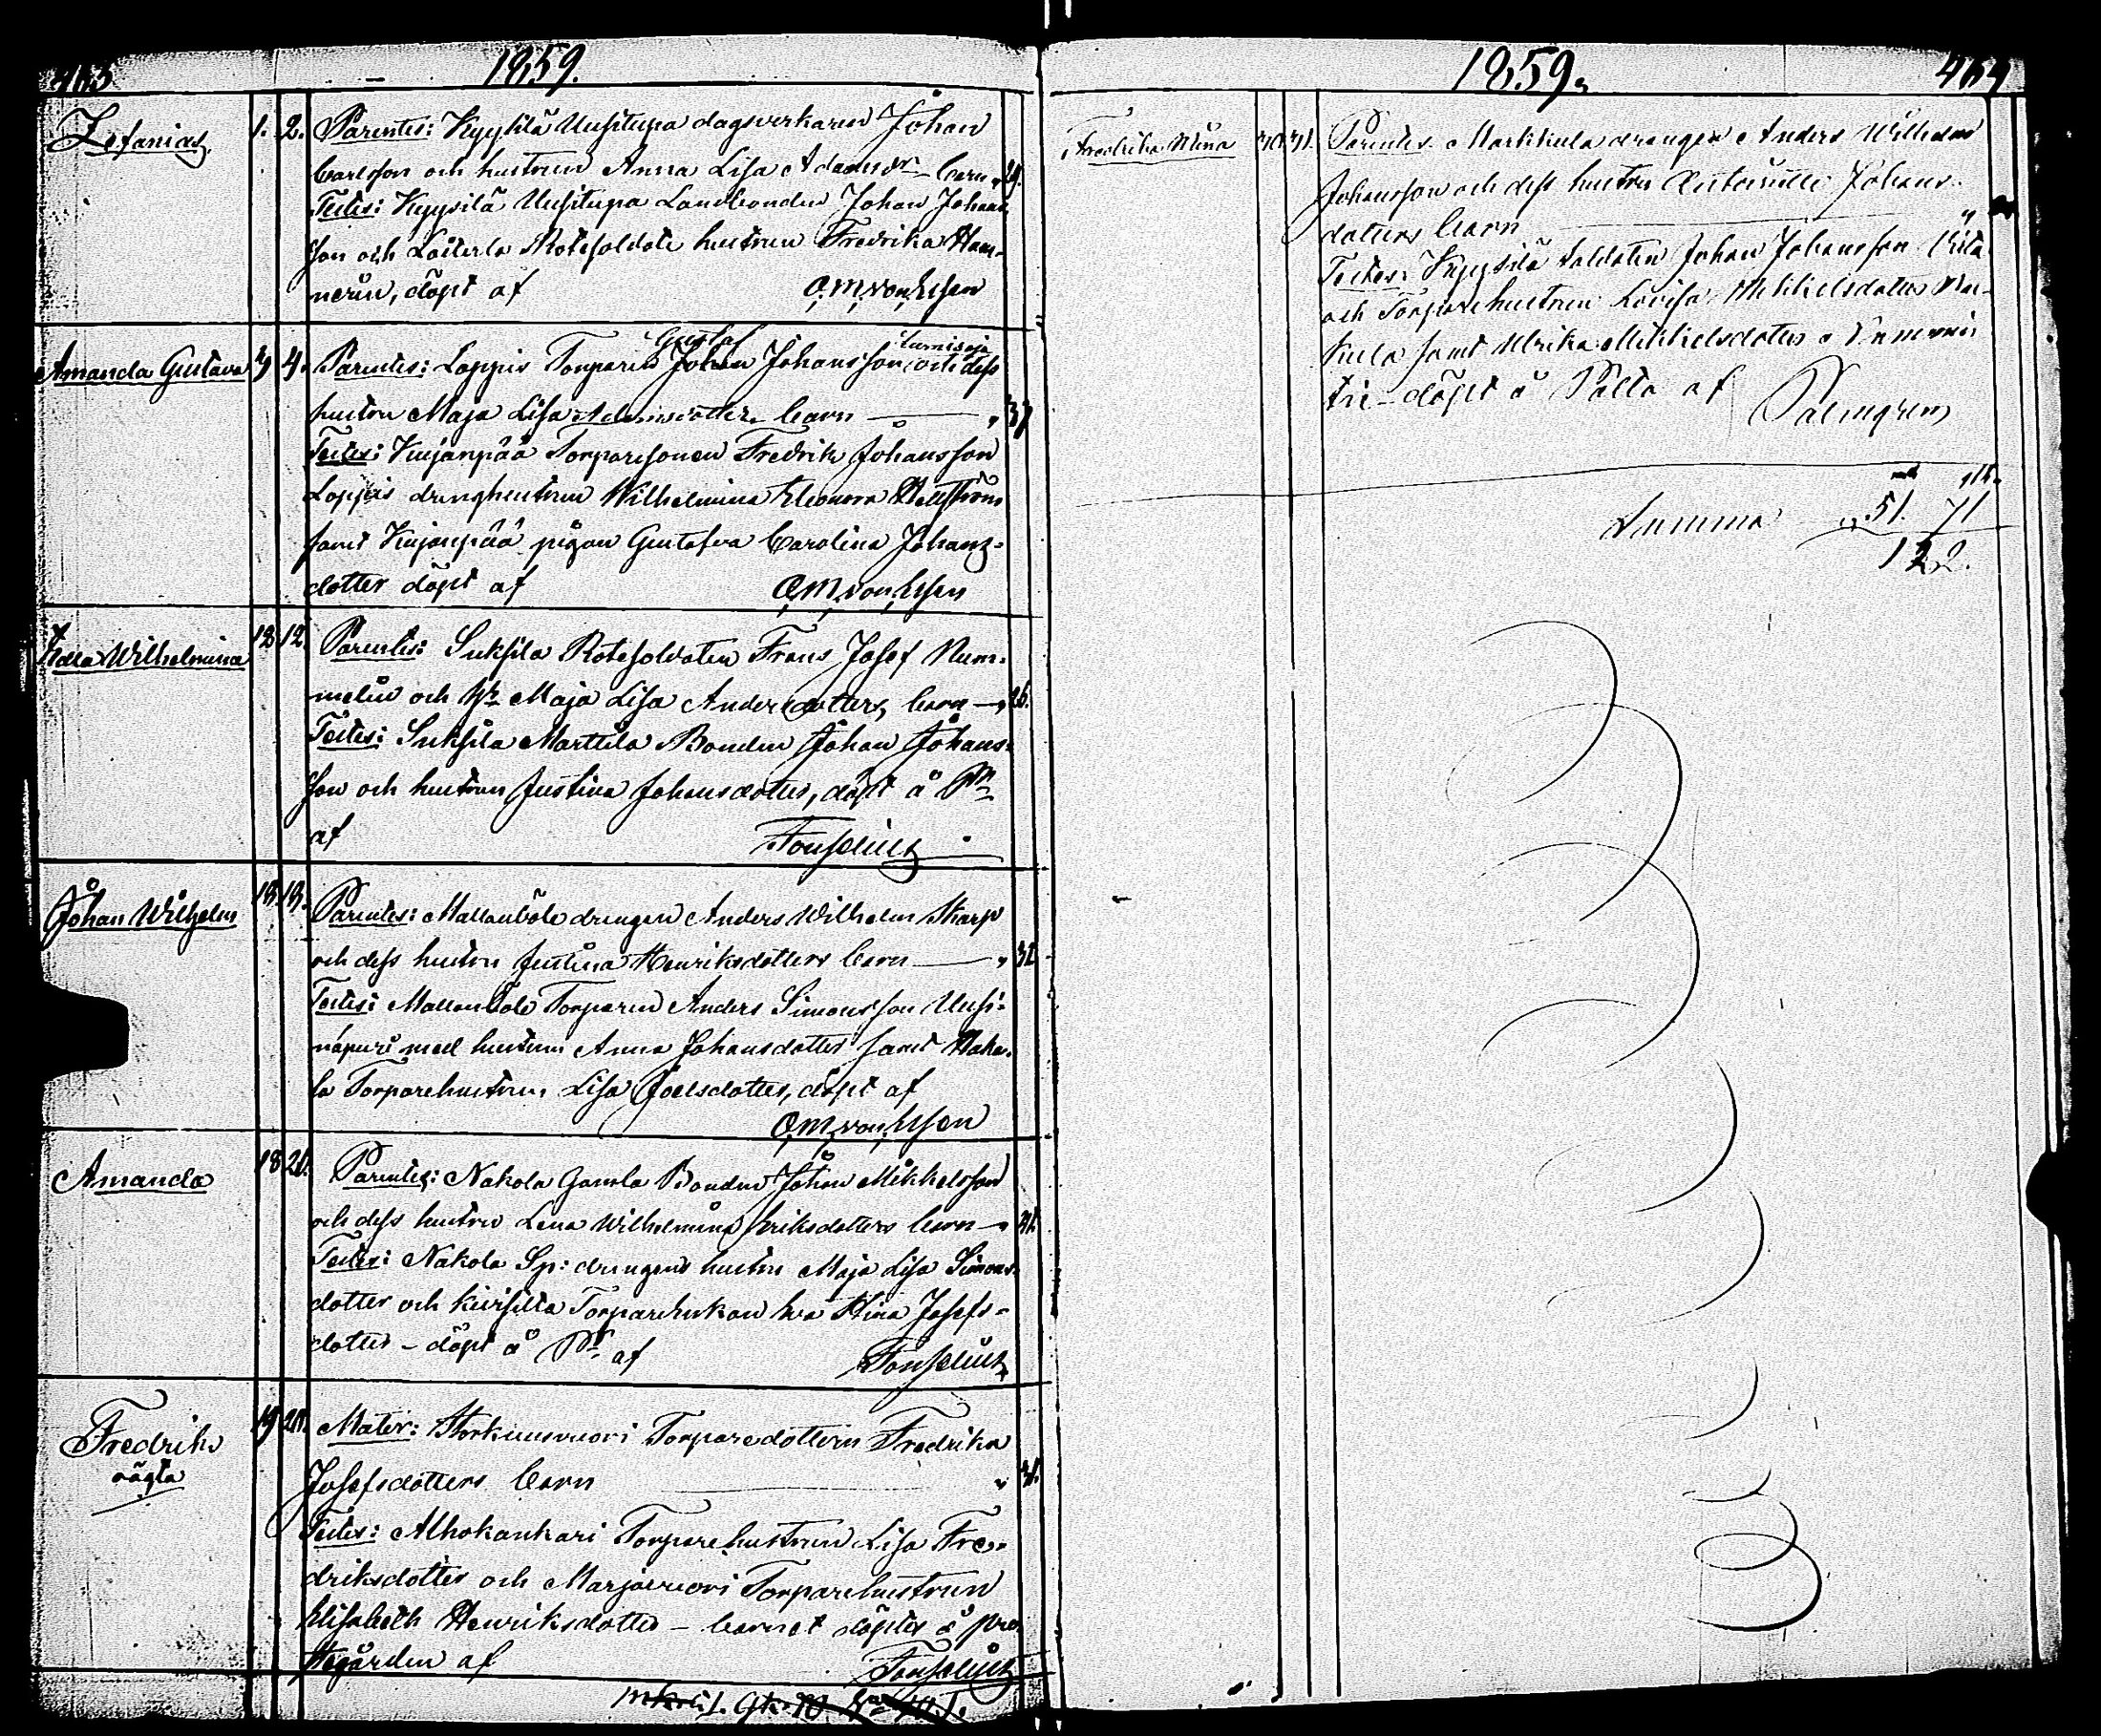 463 1859.
Zefanias. 1. 2. Parentes: Kyysilä Uusitupa dagsverkaren Johan
Carlsson och hustrun Anna Lisa Adamsdr barn
Testes: Kyysilä Uusitupa Landbonden Johan Johans
son och Rotesoldats hustrun Fredrika Ham-
nerin, döpt af O. M. von Essen
Amanda Gustava 4. Parentes: Loppis Torparen Gustaf Johan Johansson och dess
hustru Maja Lisa barn 37
Testes: Kujanpää Torparesonen Fredrik Johansson
Loppis drenghustrun Wilhelmina Eleonora Wellström
samt Kujanpää pigan Gustafva Carolina Johans-
dotter döpt af O. M. von Essen
Wilhelmina 12 12. Parentes: Suksila Rotesoldaten Frans Josef Num-
melin och Hr Maja Lisa Andersdotters barn 26.
Testes: Suksila Marttila Bonden Johan Johans-
son och hustrun Justina Johansdotter, döpt å
af Tonselius
Johan Wilhelm 18. 19. Parentes: Mallanböle drengen Anders Wilhelm Skarp
och dess hustru Justina Henriksdotters barn 32
Testes: Mallanböle Torparen Anders Simonsson Uusi-
näpuri med hustrun Anna Johansdotter samt Haka-
la Torparehustrun Lisa Joelsdotter, döpt af
O. M. von Essen
Amanda 18 Parentes: Nakola Gamla Bonden Johan Mikkelsson
och dess hustru Lena Wilhelmina Eriksdotters barn
Testes: Nakola Sp: drengens hustru Maja Lisa Simons-
dotter och Kivisilta Torpare enkan Eva Stina Josefs-
dotter – döpt å af Tonselius
Fredrik oägta 19 Mater: Storkuusvuori Torparedottern Fredrika
Josefsdotters barn
Testes: Alhokankari Torparehustrun Lisa Fre-
driksdotter och Marjavuori Torparehustrun
Elisabeth Henriksdotter – barnet döptes å pre-
stegården af Tonselius
1859. 464
Fredrika Mina 30. 31. Parentes: Markkula drengen Anders Wilhelm
Johansson och dess hustru Johans-
dotters barn
Testes: Kyysilä soldaten Johan Johansson
och Torparehustrun Lovisa Mikkelsdotter
kula samt Ulrika Mikkelsdotter
döpt å af
Palmgren
mk qk.
Summa 51. 71
122.